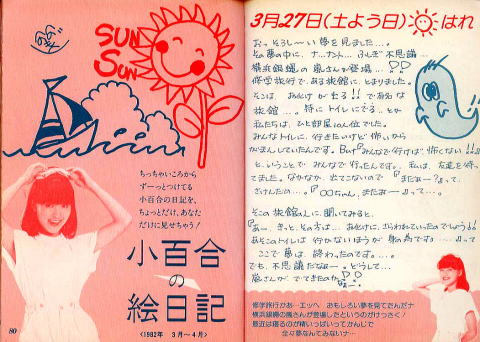 SUN
SUN
ちっちゃいころから
ずーっとつけてる
小百合の日記を、
ちょっとだけ、あなた
だけに見せちゃう!
小百合
の
絵日記
〈1982年 3月〜4月〉
80
3月27日(土よう日) はれ
おっそろし〜い夢を見ました…。
その夢の中に、ナ、ナント… ふしぎ不思議…
横浜銀蝿の嵐さんが登場…!?
修学旅行で、ある旅館に、とまりました。
そこは、おばけが出る!!で有名な
旅館…。特にトイレにでる…とか
私たちは、ひと部屋10人位でした。
みんなトイレに行きたいけど怖いから
がまんしていたんです。But『みんなで行けば、怖くない!!』
と、いうことで みんなで行ったんです。私は、友達を待っ
てました。なかなか、出てこないので『まだぁー?』って、
さけんだの…。『〇〇ちゃん、まだぁー』って…。
そこの旅館の人に聞いてみると、
『あー、きっと、その方は… おばけに、さらわれていったのでしょう
あそこのトイレは 行かないほうが 身の為です……』って
ここで夢は、終わったのです。…。
でも、不思議だなぁー。どうして…
嵐さんが でてきたのかなぁー。
修学旅行かあ…エッヘ おもしろい夢を見てたんだナ
横浜銀蝿の嵐さんが登場したというのがけっさく!
最近は寝るのが精いっぱいってかんじで
全々夢なんてみないナ…